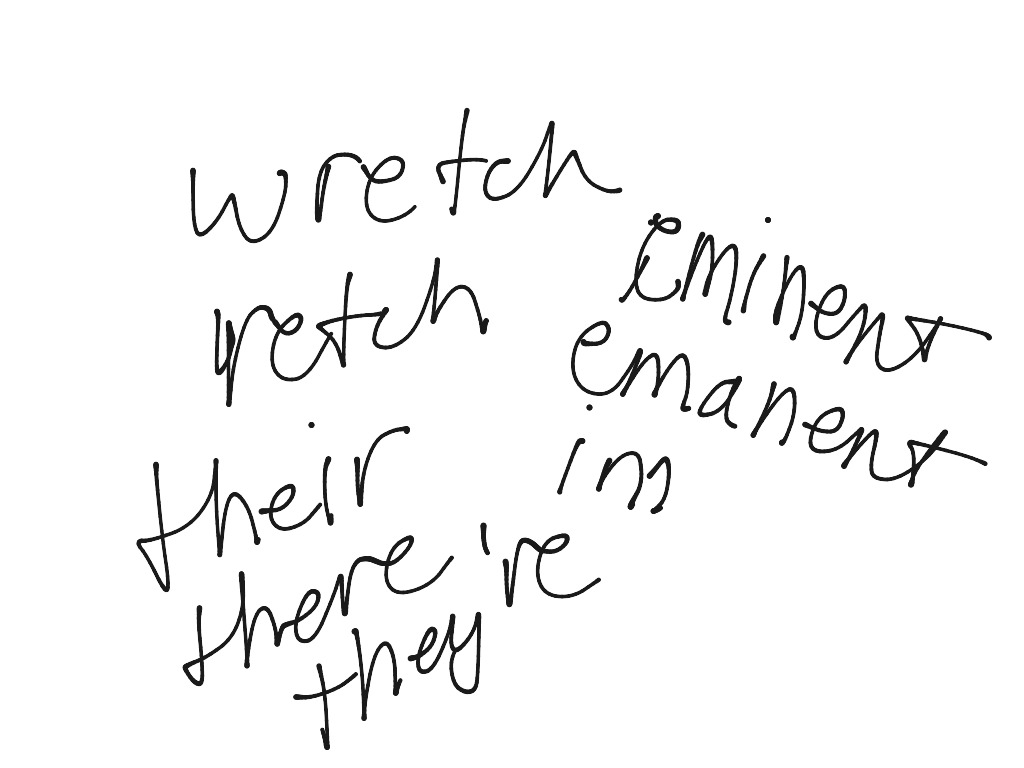 wretch
retch
their
there're
they
eminent
emanent
im